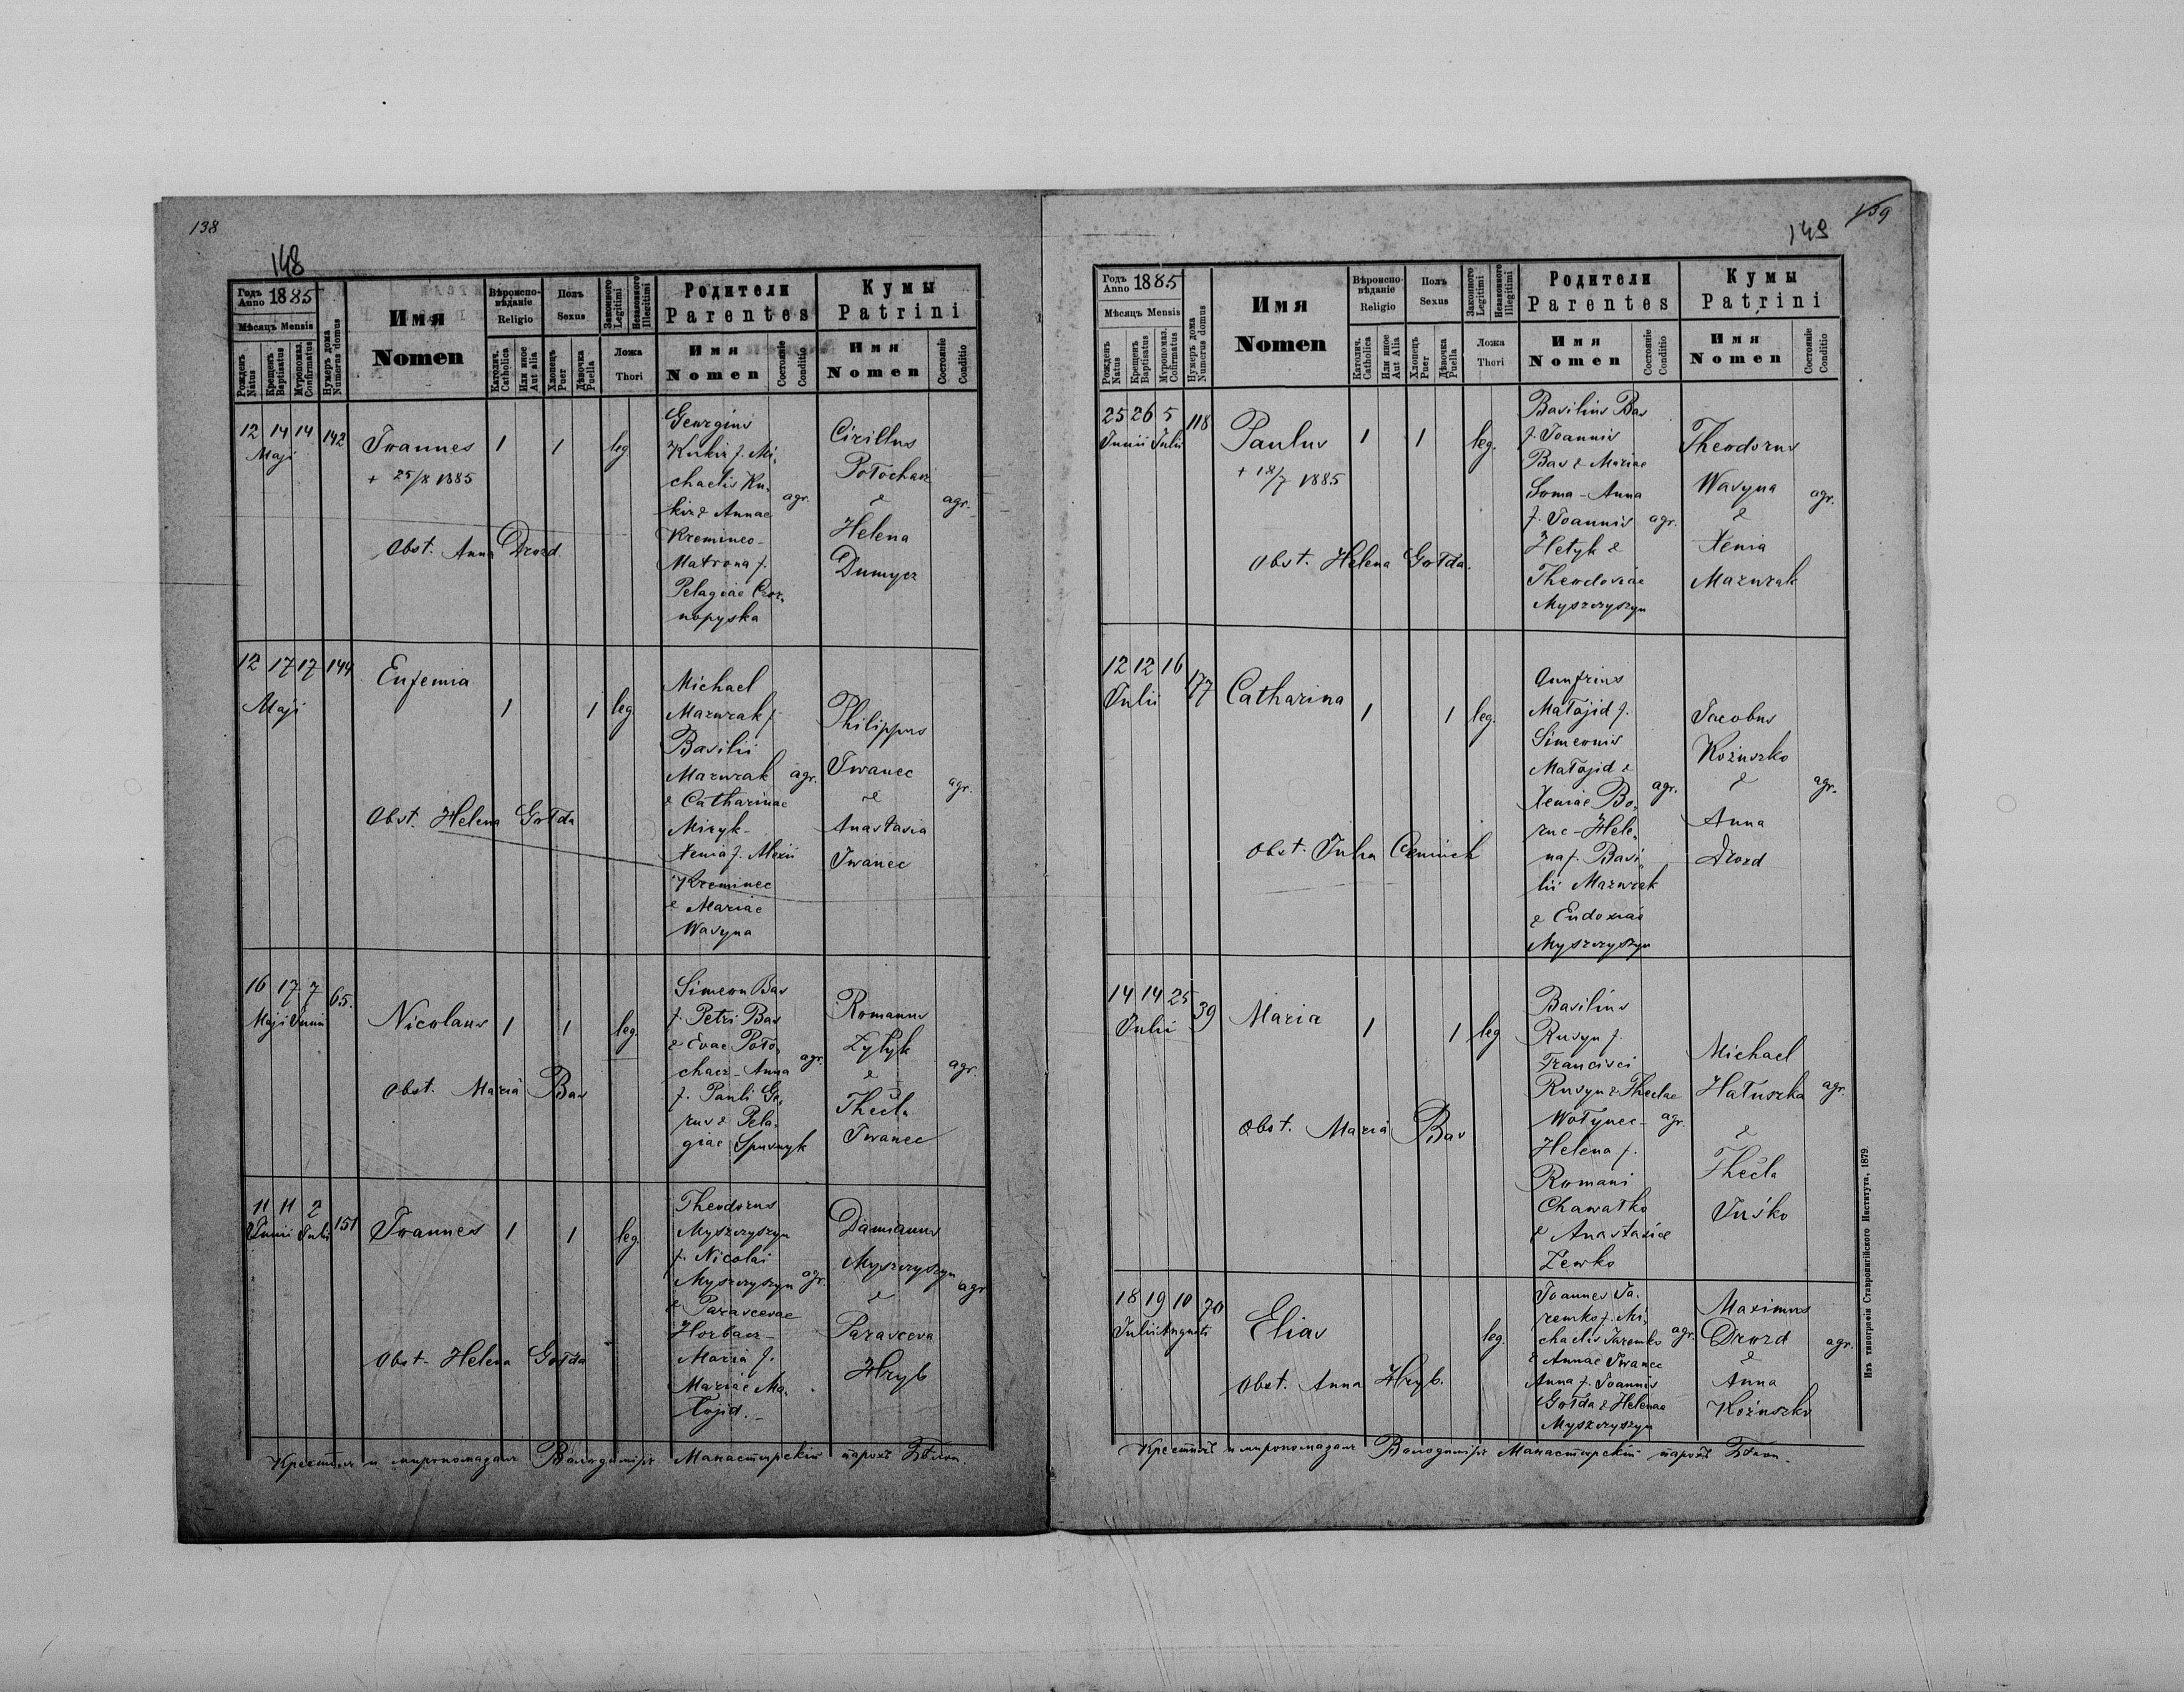 138
148
Годъ Anno 1885
Мѣсяцъ Mensis
Рожденъ Natus
Крещенъ Baptisatus
Мѵропомаз. Confirmatus
Нумеръ дома Numerus domus
Имя
Nomen
Вѣроиспо-
вѣданіе
Religio
Католич. Catholica
Или иное Aut alia
Полъ
Sexus
Хлопецъ Puer
Дѣвочка Puella
Законного Legitimi
Незаконного Illegitimi
Ложа
Thori
Родители
Parentes
Имя
Nomen
Состояніе Conditio
Кумы
Patrini
Имя
Nomen
Состояніе Conditio
12 14 14 142
Maji
Joannes 1 1 leg
+ 25/8 1885
Obst. Anna Drozd
Georgius
Kukiz f. Mi-
chaelis Ku-
kiz & Annae
Kreminec-
Matrona f.
Pelagiae Czor-
nopyska
agr.
Cirillus
Potochacz
&
Helena
Dumycz
agr.
12 17 17 144
Maji
Eufemia
1 1 leg.
Obst. Helena Gołda
Michael
Mazurak f.
Basilii
Mazurak
& Catharinae
Mizyk-
Xenia f. Alexii
Kreminec
& Mariae
Wasyna
agr.
Philippus
Iwanec
&
Anastasia
Iwanec
agr.
16 17 7 65.
Maji Junii
Nicolaus 1 1 leg.
Obst. Maria Bas
Simeon Bas
f. Petri Bas
& Evae Poto-
chacz-Anna
f. Pauli Ge-
rus & Pela-
giae Spusnyk
agr.
Romanus
Zylyk
&
Thecla
Iwanec
agr.
11 11 2 151
Junii Julii
Joannes 1 1 leg.
Obst. Helena Gołda
Theodorus
Myszczyszyn
f. Nicolai
Myszczyszyn
& Parascevae
Horbacz-
Maria f.
Mariae Ma-
łojid.-
agr.
Damianus
Myszczyszyn
&
Parasceva
Hryb
agr
Крестилъ и миропомазалъ Володимиръ Манастирскій парохъ
159
149
Годъ Anno 1885
Мѣсяцъ Mensis
Рожденъ Natus
Крещенъ Baptisatus
Мѵропомаз. Cofirmatus
Нумеръ дома Numerus domus
Имя
Nomen
Вѣроиспо-
вѣданіе
Religio
Католич. Catholica
Или иное Aut Alia
Полъ
Sexus
Хлопецъ Puer
Дѣвочка Puella
Законного Legitimi
Незаконного Illegitimi
Ложа
Thori
Родители
Parentes
Имя
Nomen
Состояніе Conditio
Кумы
Patrini
Имя
Nomen
Состояніе Conditio
25 26 5 118
Junii Julii
Paulus 1 1 leg.
+ 18/7 1885
Obst. Helena Gołda.
Basilius Bas
f. Joannis
Bas & Mariae
Soma-Anna
f. Joannis
Hetyk &
Theodosiae
Myszczyszyn
agr.
Theodorus
Wasyna
&
Xenia
Mazurak
agr.
12 12 16 177
Julii
Catharina
1 1 leg.
Obst. Julia
Onufrius
Małojid f.
Simeonis
Małojid &
Xeniae Bo-
ruc-Hele-
na f. Basi-
lii Mazurak
& Eudoxiae
Myszczyszyn
agr.
Jacobus
Kożuszko
&
Anna
Drozd
agr.
14 14 25 39
Julii
Maria 1 1 leg
Obst. Maria Bas
Basilius
Rusyn f.
Francisci
Rusyn & Theclae
Wołynec-
Helena f.
Romani
Chawałko
& Anastasiae
Zewko
agr.
Michael
Hałuszka
&
Thecla
Juśko
agr.
18 19 10 70
Julii Augusti
Elias leg.
Obst. Anna Hryb.
Joannes Ja-
remko f. Mi-
chaelis Jaremko
& Annae Iwanec
Anna f. Joannis
Gołda & Helenae
Myszczyszyn
agr.
Maximus
Drozd
&
Anna
Kożuszko
agr.
Крестилъ и миропомазалъ Володимиръ Манастирскій парохъ
Изъ типографіи Ставропигійского Института, 1879.